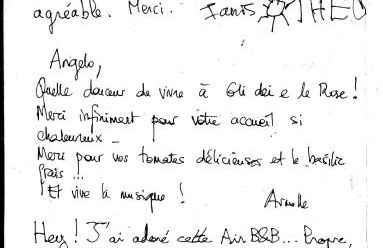 agréable. Merci. Janis THEO
Angelo,
Quelle douceur de vivre à Gli dei e le Rose !
Merci infiniment pour votre accueil si
chaleureux -
Merci pour vos tomates délicieuses et le basilic
frais !!
Et vive la musique !
Armelle
Hey ! J'ai adoré cette AirB&B... Propre,